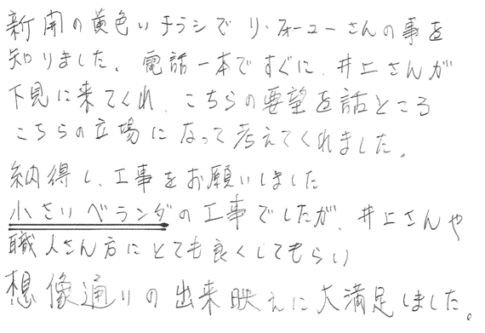 新聞の黄色いチラシでリ・フォーユーさんの事を
知りました。電話一本ですぐに、井上さんが
下見に来てくれ、こちらの要望を話ところ
こちらの立場になって考えてくれました。
納得し、工事をお願いしました
小さいベランダの工事でしたが、井上さんや
職人さん方にとても良くしてもらい
想像通りの出来映えに大満足しました。